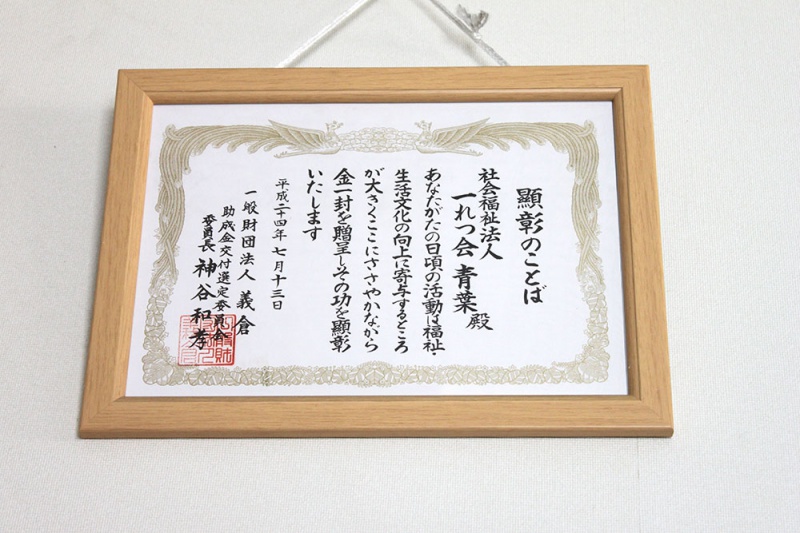 顯彰のことば
社会福祉法人
一れつ会 青葉 殿
あなたがたの日頃の活動は福祉・
生活文化の向上に寄与するところ
が大きくここにささやかながら
金一封を贈呈しその功を顯彰
いたします
平成二十四年七月十三日
一般財団法人 義倉
助成金交付選定委員会
委員長 神谷和孝